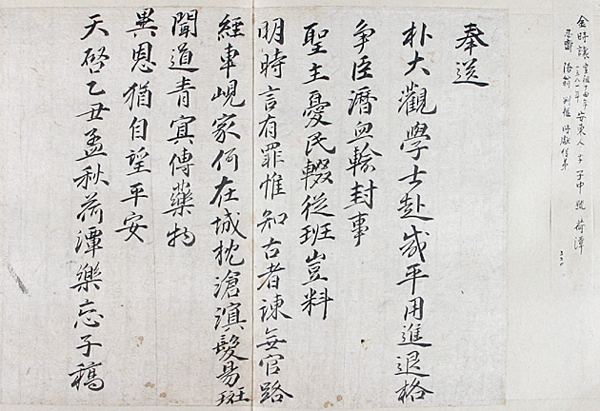 金時讓 安東人 字 子中 號 荷潭
奉送
朴大觀學士赴咸平用進退格
爭臣瀝血輸封事
聖主憂民輟從班豈料
明時言有罪惟知古者諫無官路
經車峴家何在城枕滄溟髮易斑
聞道青冥傳藥物
異恩猶自望平安
天啓乙丑孟秋荷潭樂忘子稿